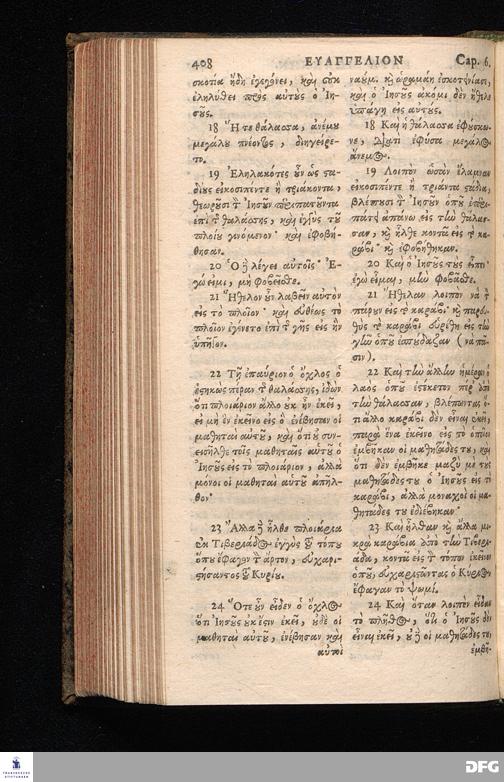 408 ΕΥΑΓΓΕΛΙΟΝ Cap. 6.
σκοτία ἤδη ἐγεγόνει, καὶ οὐκ
ἐληλύθει πρὸς αὐτοὺς ὁ Ἰη-
σοῦς.
18 Ἥ τε θάλασσα, ἀνέμου
μεγάλου πνέοντος, διηγείρε-
το.
19 Ἐληλακότες οὖν ὡς στα-
δίους εἰκοσιπέντε ἢ τριάκοντα,
θεωροῦσι τὸν Ἰησοῦν περιπατοῦντα
ἐπὶ τῆς θαλάσσης, καὶ ἐγγὺς τοῦ
πλοίου γινόμενον· καὶ ἐφοβή-
θησαν.
20 Ὁ δὲ λέγει αὐτοῖς· Ἐ-
γώ εἰμι, μὴ φοβεῖσθε.
21 Ἤθελον οὖν λαβεῖν αὐτὸν
εἰς τὸ πλοῖον· καὶ εὐθέως τὸ
πλοῖον ἐγένετο ἐπὶ τῆς γῆς εἰς ἣν
ὑπῆγον.
22 Τῇ ἐπαύριον ὁ ὄχλος ὁ
ἑστηκὼς πέραν τῆς θαλάσσης, ἰδὼν
ὅτι πλοιάριον ἄλλο οὐκ ἦν ἐκεῖ,
εἰ μὴ ἓν ἐκεῖνο εἰς ὃ ἐνέβησαν οἱ
μαθηταὶ αὐτοῦ, καὶ ὅτι οὐ συν-
εισῆλθε τοῖς μαθηταῖς αὐτοῦ ὁ
Ἰησοῦς εἰς τὸ πλοιάριον, ἀλλὰ
μόνοι οἱ μαθηταὶ αὐτοῦ ἀπῆλ-
θον·
23 Ἄλλα δὲ ἦλθε πλοιάρια
ἐκ Τιβεριάδος ἐγγὺς τοῦ τόπου
ὅπου ἔφαγον τὸν ἄρτον, εὐχαρι-
στήσαντος τοῦ Κυρίου.
24 Ὅτε οὖν εἶδεν ὁ ὄχλος
ὅτι Ἰησοῦς οὐκ ἔστιν ἐκεῖ, οὐδὲ οἱ
μαθηταὶ αὐτοῦ, ἐνέβησαν καὶ
αὐτοὶ
ναούμ. καὶ ὡραμάκη ἐσκοτείνιασε,
καὶ ὁ Ἰησοῦς ἀκόμι δὲν ἦθελε
ὑπάγη εἰς αὐτούς.
18 Καὶ ἡ θάλασσα ἐφούσκω-
νε, διατὶ ἐφύσα μεγάλος
ἄνεμος.
19 Λοιπὸν ὡσὰν ἔλαμναν
εἰκοσιπέντε ἢ τριάντα στάδια,
βλέπουσι τὸν Ἰησοῦν ὁποῦ ἐπερι-
πάτει ἀπάνω εἰς τὴν θάλασ-
σαν, καὶ ἦλθε κοντὰ εἰς τὸ κα-
ράβι· καὶ ἐφοβήθηκαν.
20 Καὶ ὁ Ἰησοῦς τοὺς εἶπε·
ἐγὼ εἶμαι, μὴν φοβᾶσθε.
21 Ἤθελαν λοιπὸν νὰ τὸν
πάρουν εἰς τὸ καράβι· καὶ παρευ-
θὺς τὸ καράβι εὑρέθη εἰς τὴν
γῆν ὁποῦ ἐσπούδαζαν (νὰ πᾶ-
σιν).
22 Καὶ τὴν ἄλλην ἡμέραν ὁ
λαὸς ὁποῦ ἔστεκετον πέρα ἀπὸ
τὴν θάλασσαν, βλέποντας ὅ-
τι ἄλλο καράβι δὲν εἶναι ἐκεῖ,
παρὰ ἕνα ἐκεῖνο εἰς τὸ ὁποῖον
ἐμβῆκαν οἱ μαθητάδες του, καὶ
ὅτι δὲν ἐμβῆκε μαζὶ μὲ τοὺς
μαθητάδες του ὁ Ἰησοῦς εἰς τὸ
καράβι, ἀλλὰ μοναχοὶ οἱ μα-
θητάδες του ἐδιέβηκαν·
23 Καὶ ἦλθαν καὶ ἄλλα μι-
κρὰ καράβια ἀπὸ τὴν Τιβερι-
άδα, κοντὰ εἰς τὸν τόπον ἐκεῖνον
ὁποῦ, εὐχαριστῶντας ὁ Κύριος
ἔφαγαν τὸ ψωμί.
24 Καὶ ὅταν λοιπὸν εἶδε
τὸ πλῆθος, ὅτι ὁ Ἰησοῦς δὲν
εἶναι ἐκεῖ, οὐδὲ οἱ μαθητάδες του
ἐμβῆ-
FRANCKESCHE
STIFTUNGEN
DFG